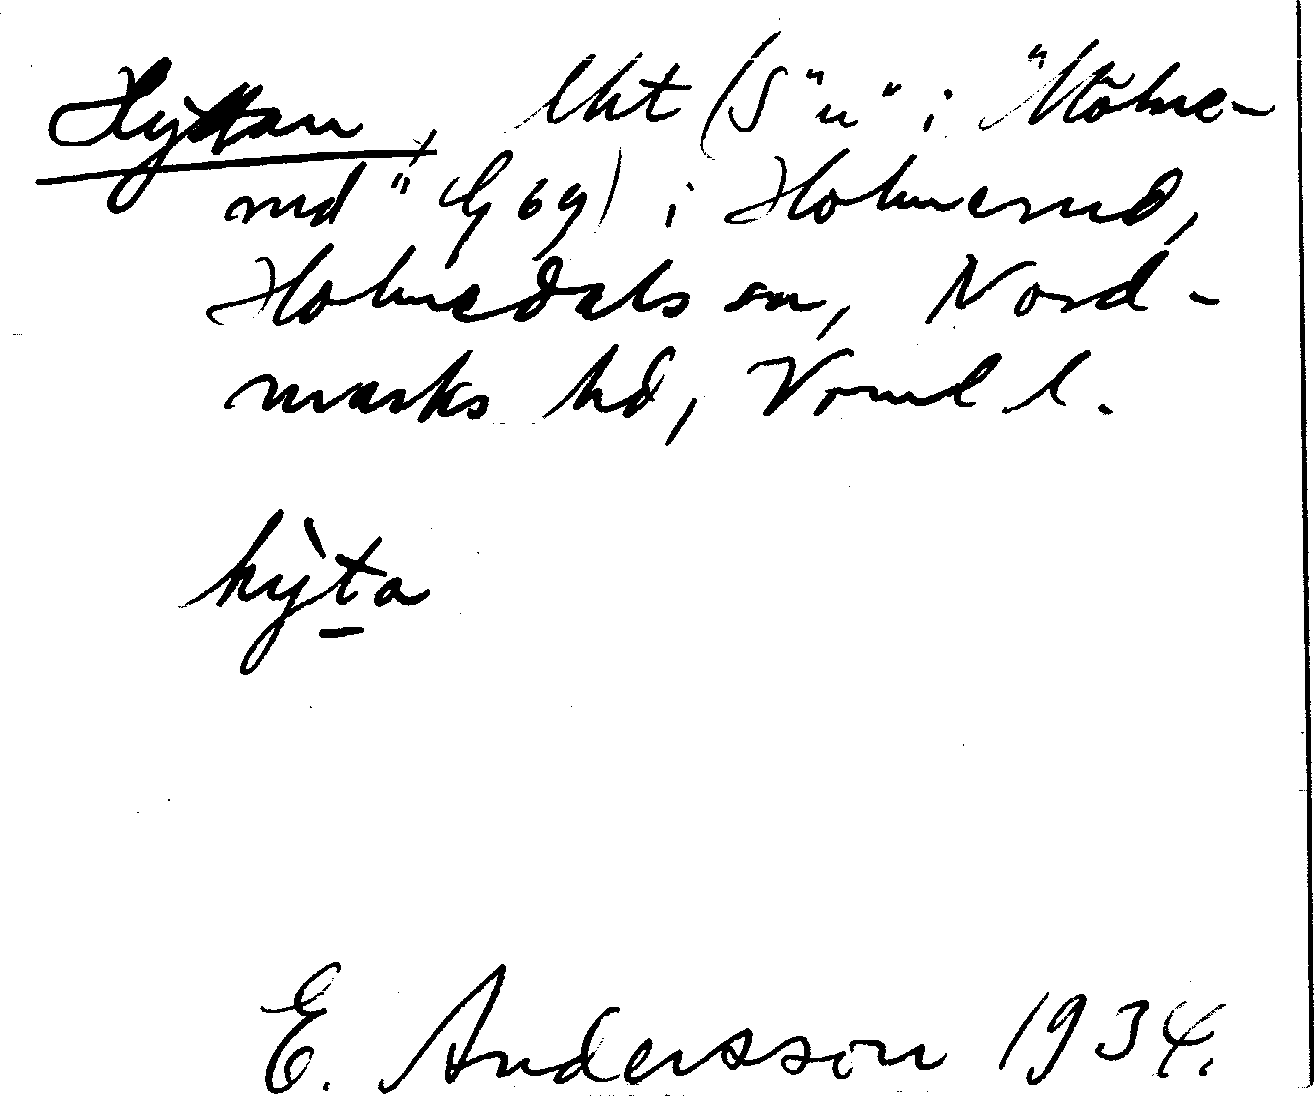 Hyttan, lht (S "u" i "Holme-
rud" Gj 69) i Holmerud,
Holmedals sn, Nord-
marks hd, Vrml l.
hỳta
E. Andersson 1934.